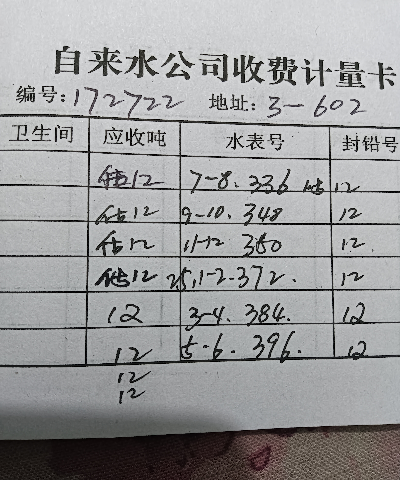 自来水公司收费计量卡
编号:172722 地址:3-602
卫生间 应收吨 水表号 封铅号
估12 7-8. 336 估 12
估12 9-10. 348 12
估12 11-12 360 12.
估12 25,1-2-372. 12
12 3-4. 384. 12
12 5-6. 396. 12
12
12